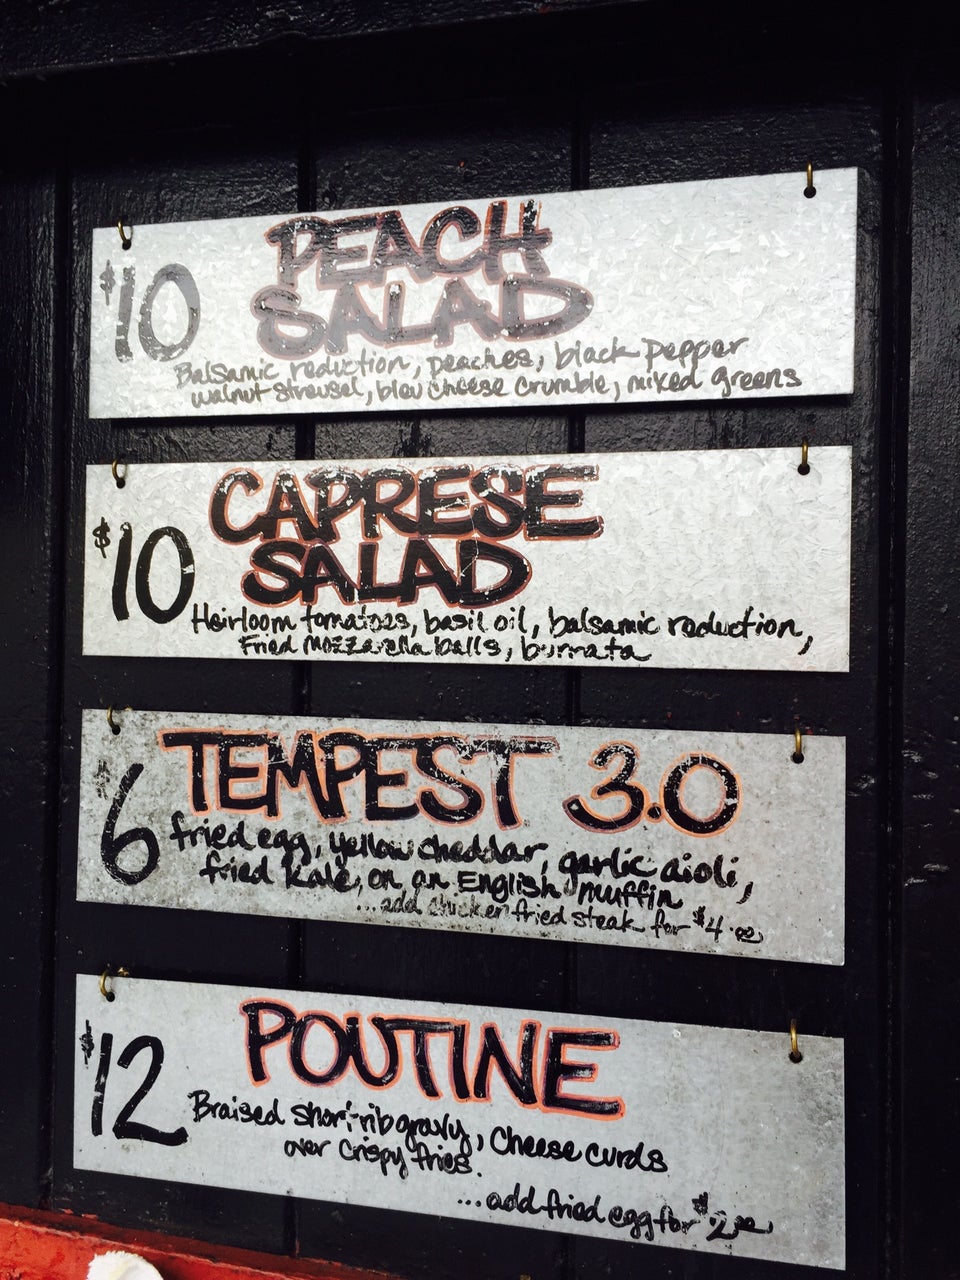 $10 PEACH
SALAD
Balsamic reduction, peaches, black pepper
walnut streusel, bleu cheese crumble, mixed greens
$10 CAPRESE
SALAD
Heirloom tomatoes, basil oil, balsamic reduction,
Fried Mozzarella balls, burrata
$6 TEMPEST 3.0
fried egg, yellow cheddar, garlic aioli,
fried kale, on an English muffin
...add chicken fried steak for $4.00
$12 POUTINE
Braised short-rib gravy, Cheese curds
over Crispy fries.
...add fried egg for $2.00